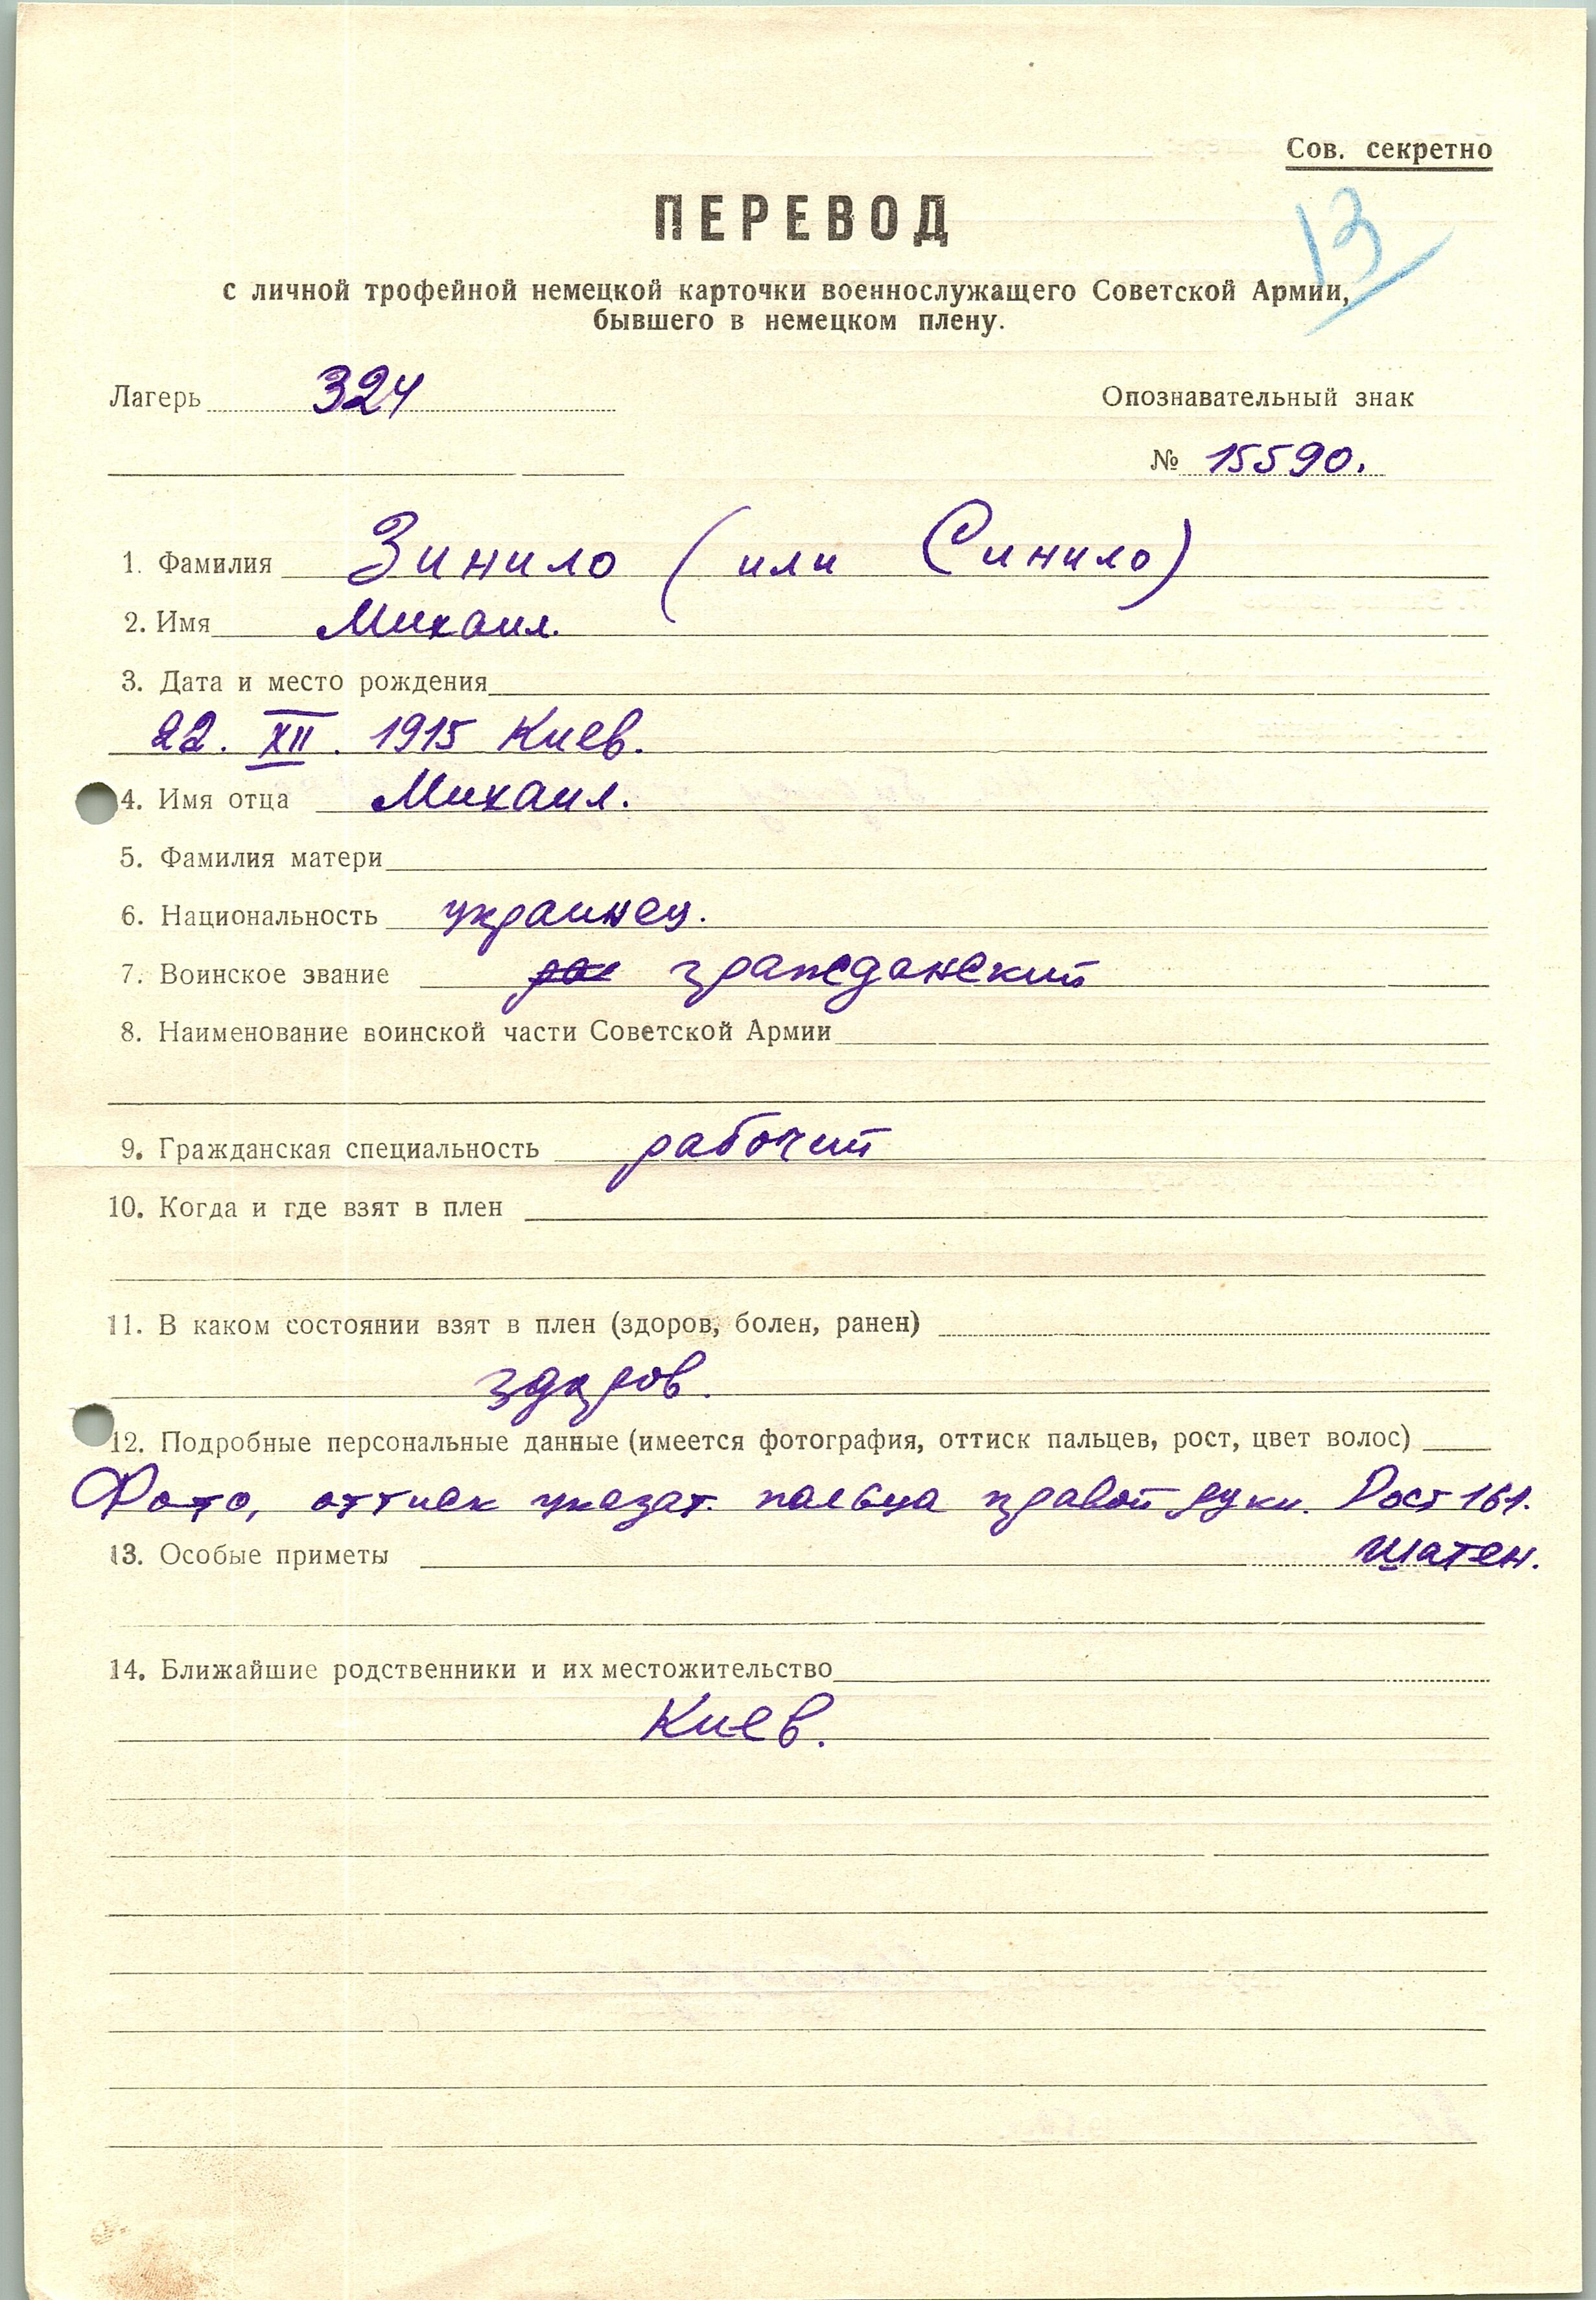 Сов. секретно
13
ПЕРЕВОД
с личной трофейной немецкой карточки военнослужащего Советской Армии,
бывшего в немецком плену.
Лагерь 324 Опознавательный знак
№ 15590.
1. Фамилия Зинило (или Синило)
2. Имя Михаил.
3. Дата и место рождения
22. XII. 1915 Киев.
4. Имя отца Михаил.
5. Фамилия матери
6. Национальность украинец.
7. Воинское звание гражданский
8. Наименование воинской части Советской Армии
9. Гражданская специальность рабочий
10. Когда и где взят в плен
11. В каком состоянии взят в плен (здоров, болен, ранен)
здоров.
12. Подробные персональные данные (имеется фотография, оттиск пальцев, рост, цвет волос)
Фото, оттиск указат. пальца правой руки. Рост 161.
шатен.
13. Особые приметы
14. Ближайшие родственники и их местожительство
Киев.